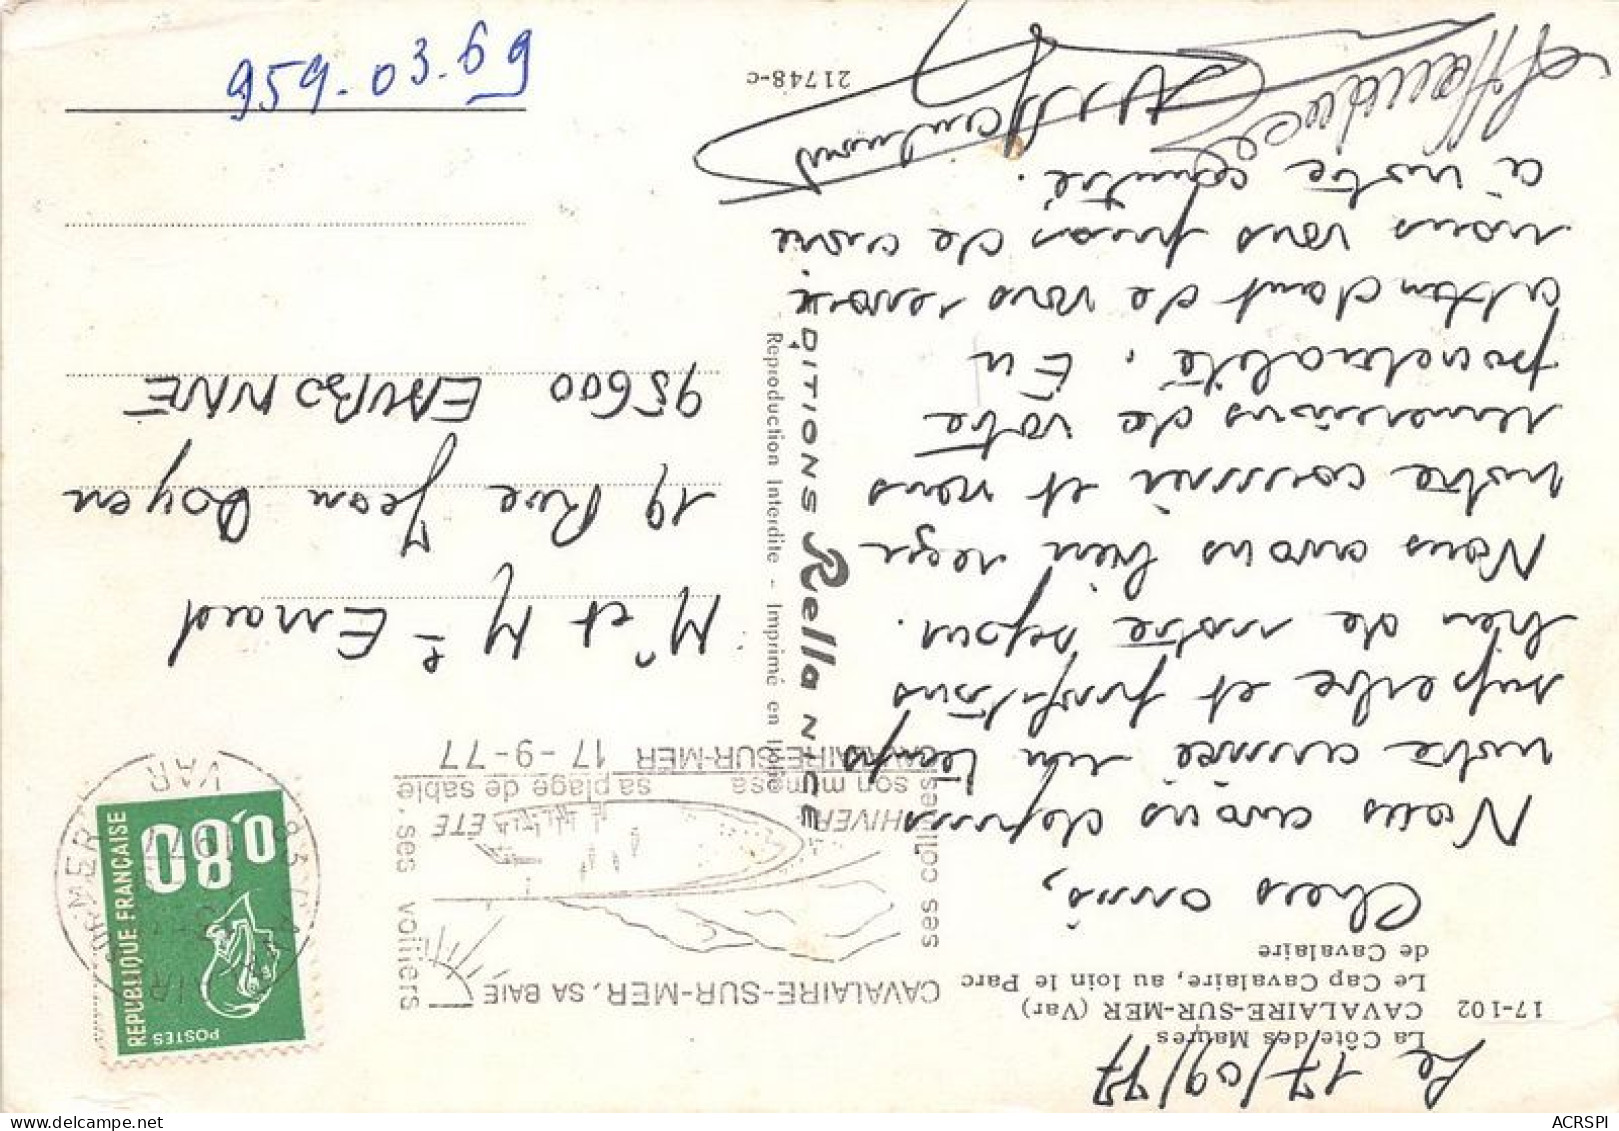 La Côte des Maures
17-102 CAVALAIRE-SUR-MER (Var)
Le Cap Cavalaire, au loin le Parc
de Cavalaire
Le 17/09/77
Chers amis,
Nous avons depuis
notre arrivée un temps
superbe et profitons
bien de notre séjour.
Nous avons bien reçu
notre courrier et nous
remercions de votre
ponctualité. En
attendant de vous revoir
nous vous prions de croire
à notre amitié.
21748-c
EDITIONS Rella NICE
Reproduction Interdite - Imprimé en Italie
CAVALAIRE-SUR-MER, SA BAIE
ses collines
ses voiliers
HIVER
ÉTÉ
son mimosa
sa plage de sable
CAVALAIRE-SUR-MER 17-9-77
POSTES
REPUBLIQUE FRANÇAISE
0.80
VAR
Mr et Me Errard
19 Rue Jean Doyen
95600 EAUBONNE
959-03.69
ACRSPI